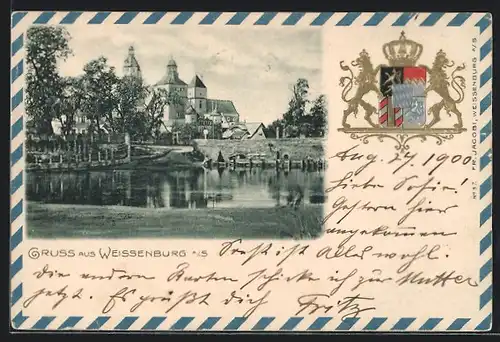 GRUSS AUS WEISSENBURG A/S
Nº 37 FR. JACOBI, WEISSENBURG A/S.
Aug. 27, 1900.
Liebe Sofie.
Gestern hier
angekommen
Sonst ist Alles wohl.
Die andern Karten schicke ich zur Mutter
jetzt. Es grüßt dich Fritz